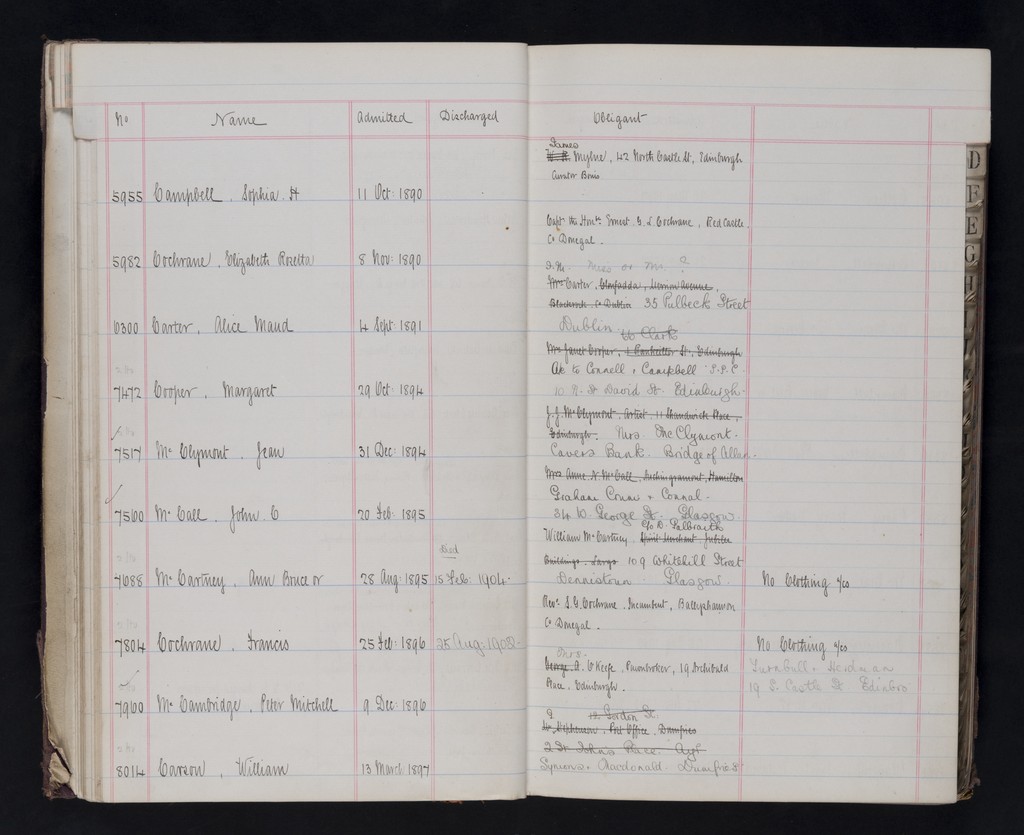 No Name Admitted Discharged Obligant
James
Mylne, 42 North Castle St, Edinburgh
Curator Bonis
5955 Campbell, Sophia H 11 Oct: 1890
Capt. the Honble Ernest G. L. Cochrane, Red Castle,
Co Donegal.
5982 Cochrane, Elizabeth Rosetta 8 Nov: 1890
Miss or Mrs ?
Mrs Carter, Vernon Avenue,
Co Dublin 35 Pulbeck Street
6300 Carter, Alice Maud 4 Sept: 1891 Dublin
Clark
Mrs Janet Cooper, St, Edinburgh
to Connell & Campbell S.S.C.
7472 Cooper, Margaret 29 Oct: 1894 10 N. St David St. Edinburgh
J. J. McClymont, Artist, 11 Shandwick Place,
Edinburgh. Mrs. McClymont.
7517 Mc Clymont, Jean 31 Dec: 1894 Cavers Bank. Bridge of Allan.
Mrs Anne N. McCall, Hamilton
Graham & Connal.
7560 Mc Call, John C 20 Feb: 1895 34 W. George St. Glasgow.
c/o D. Galbraith
William McCartney, Spirit Merchant, Jubilee
Died
Buildings, Largs 109 Whitehill Street
7688 Mc Cartney, Ann Bruce or 28 Aug: 1895 15 Feb: 1904. Dennistoun. Glasgow. No Clothing a/cs
Revd S. G. Cochrane, Incumbent, Ballyshannon
Co Donegal.
7804 Cochrane, Francis 25 Feb: 1896 25 Aug: 1908. No Clothing a/cs
Mrs.
George A. O'Keefe, Pawnbroker, 19 Archibald Turnbull & Herdman
Place, Edinburgh. 19 S. Castle St Edinbro
7960 Mc Cambridge, Peter Mitchell 9 Dec: 1896
Gordon St.
Post Office, Dumfries
2 St Johns Place. Ayr
8014 Carson, William 13 March 1897 Symons & Macdonald. Dumfries
D
F
E
G
H